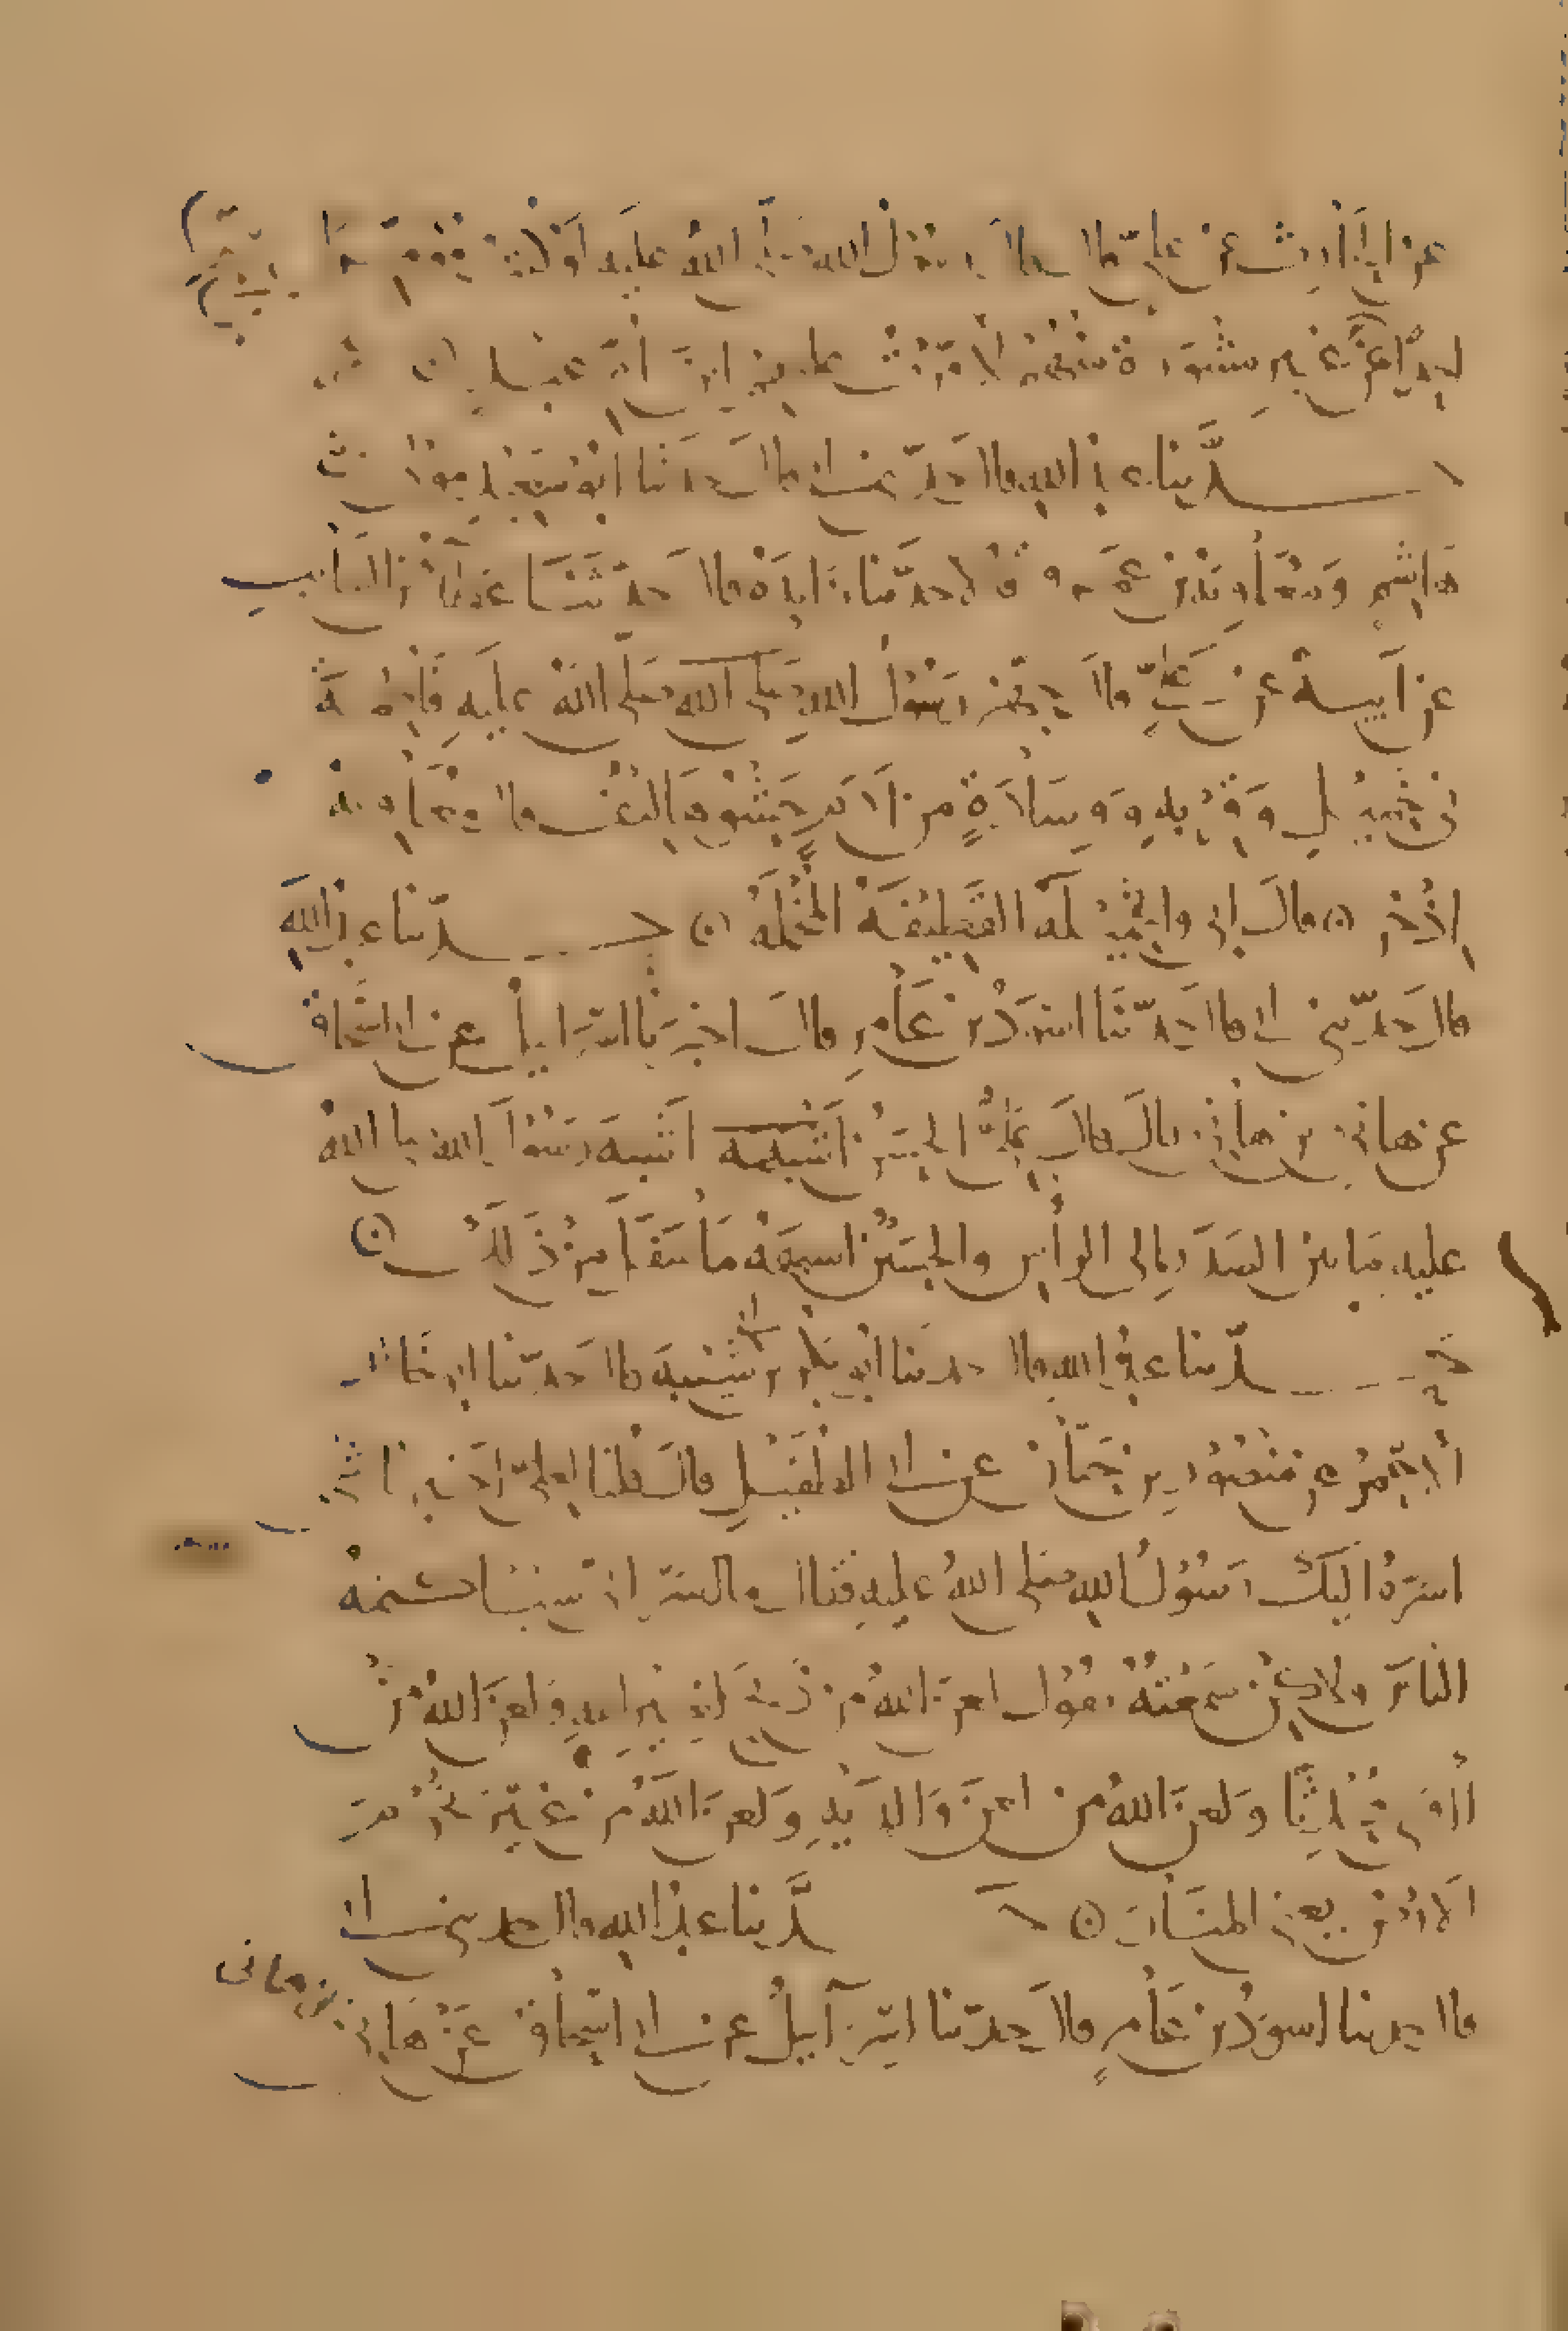 عن الحارث عن علي قال قال رسول الله صلى الله عليه لو كنت مؤمرا
احدا عن غير مشورة منهم لأمرت عليهم ابن ام عبد
حدثنا عبد الله قال حدثني ابي قال حدثنا ابو سعيد مولى بني
هاشم ومعاوية بن عمرو قالا حدثنا زائدة قال حدثنا عطاء بن السائب
عن ابيه عن علي قال جهز رسول الله صلى الله صلى الله عليه فاطمة
في خميل وقربة ووسادة من ادم حشوها ليف قال معاوية
اذخر قال ابي والخميلة القطيفة المخملة حدثنا عبد الله
قال حدثني ابي قال حدثنا اسود بن عامر قال اخبرنا اسرائيل عن ابي اسحاق
عن هانئ بن هانئ قال قال علي الحسن اشبهه اشبه رسول الله صلى الله
عليه ما بين الصدر الى الرأس والحسين اشبه ما اسفل من ذلك
حدثنا عبد الله قال حدثنا ابو بكر بن ابي شيبة قال حدثنا ابو خالد
الأحمر عن منصور بن حيان عن ابي الطفيل قال قلنا لعلي اخبرنا بشيء
اسره اليك رسول الله صلى الله عليه فقال ما اسر الي شيئا كتمه
الناس ولكن سمعته يقول لعن الله من ذبح لغير الله ولعن الله من
آوى محدثا ولعن الله من لعن والديه ولعن الله من غير تخوم
الأرض يعني المنار حدثنا عبد الله قال حدثني ابي
قال حدثنا اسود بن عامر قال حدثنا اسرائيل عن ابي اسحاق عن هانئ بن هانئ